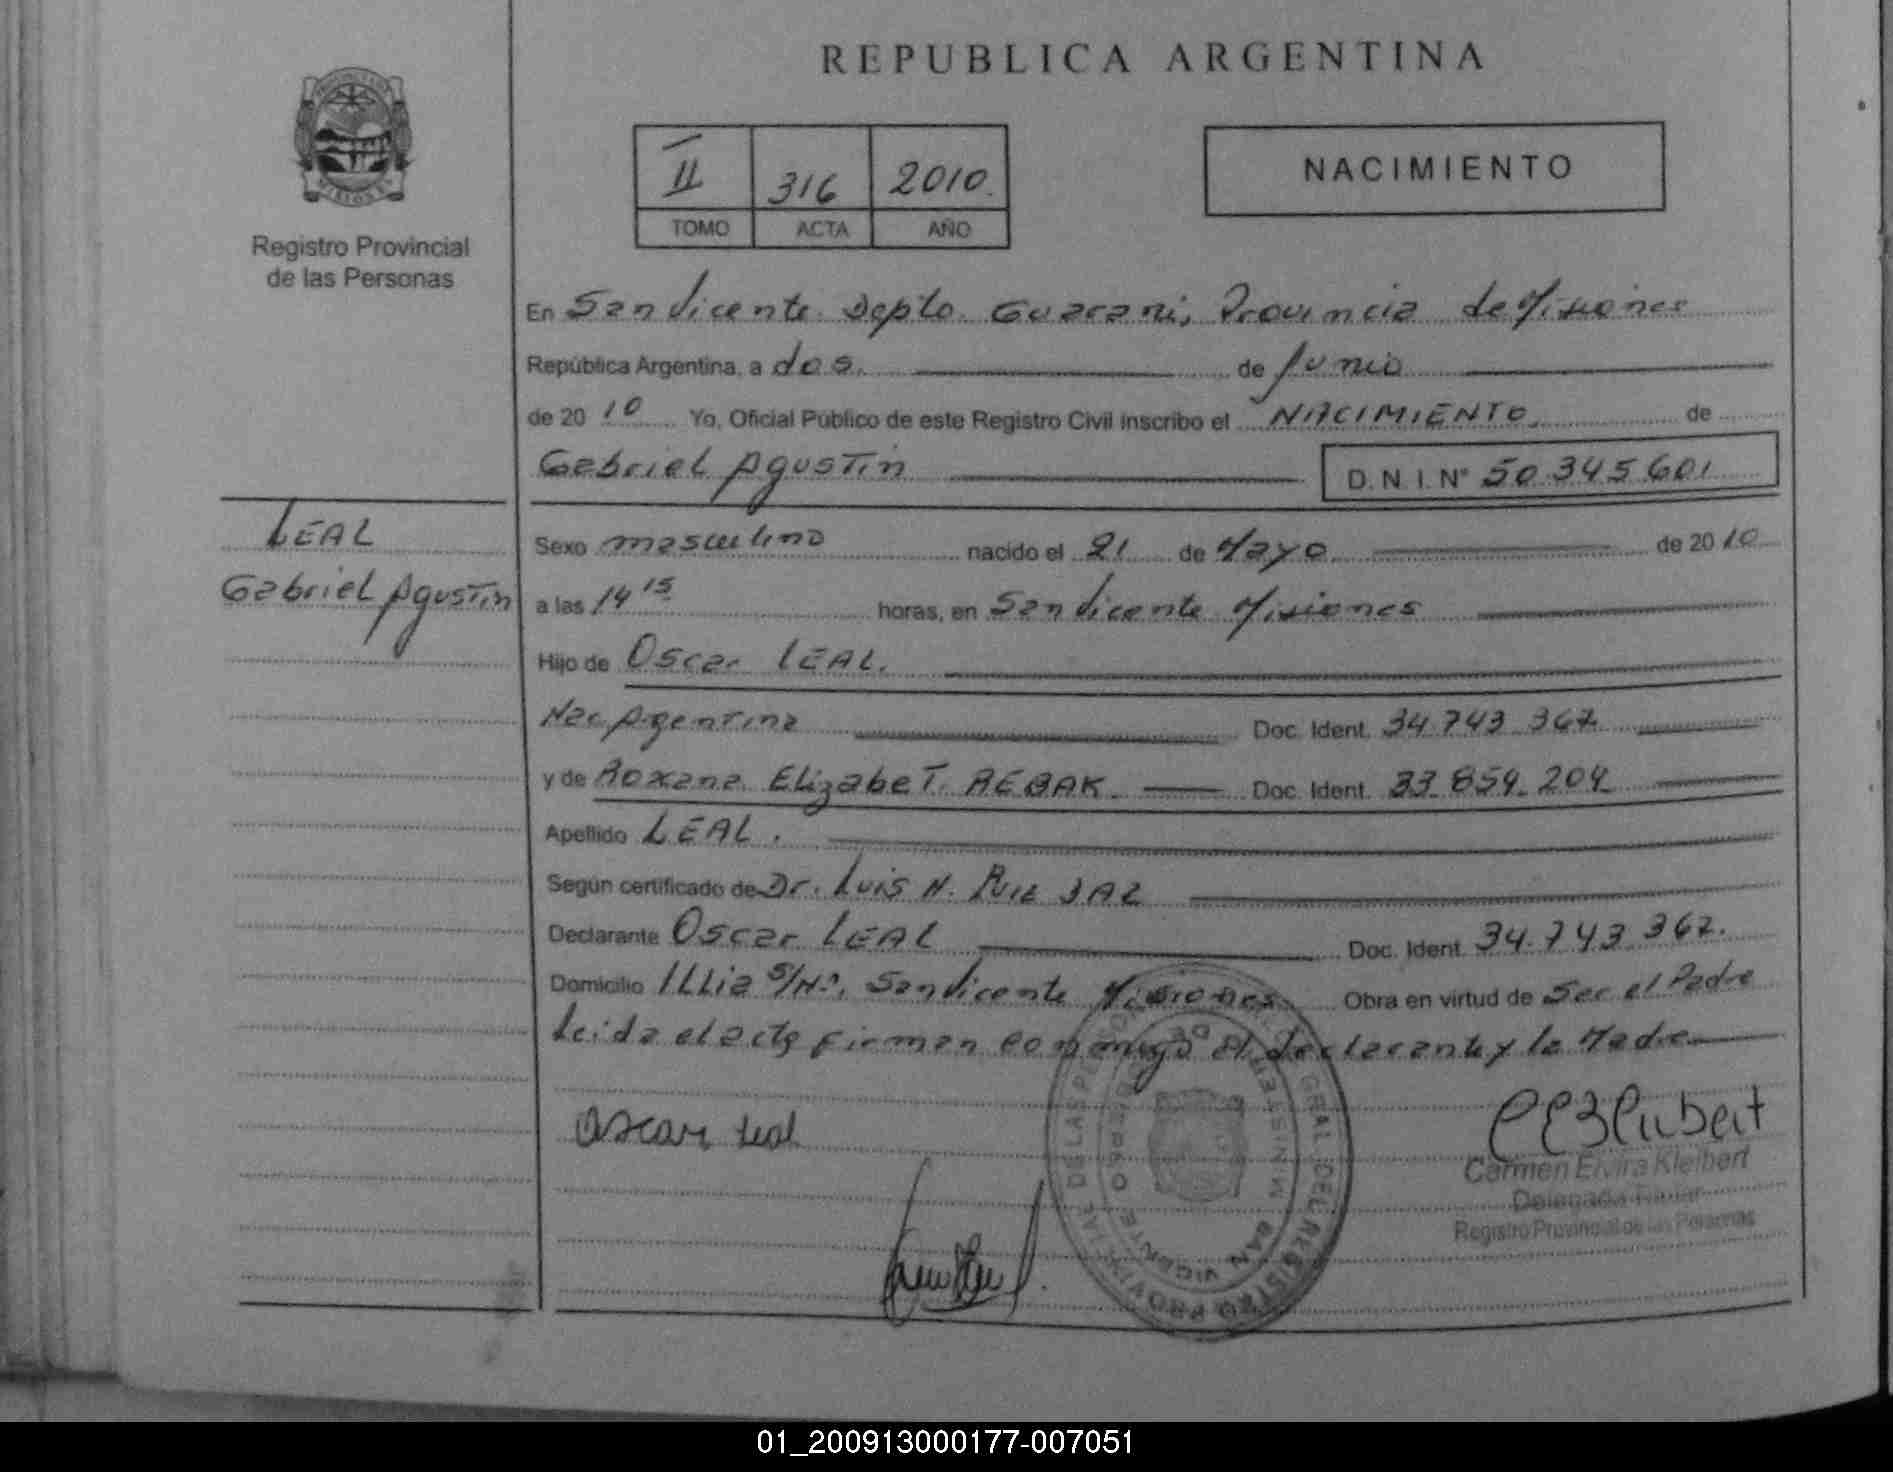 REPUBLICA ARGENTINA
II 316 2010.
TOMO ACTA AÑO
NACIMIENTO
Registro Provincial
de las Personas
En San Vicente Depto Guarani, Provincia de Misiones
República Argentina, a dos de Junio
de 20 10 Yo, Oficial Público de este Registro Civil inscribo el NACIMIENTO de
Gabriel Agustin D.N.I. N° 50.345.601
LEAL
Gabriel Agustin
Sexo masculino nacido el 21 de Mayo de 20 10
a las 14 15 horas, en San Vicente Misiones
Hijo de Oscar LEAL.
Nac. Argentina Doc. Ident. 34.743.367
y de Roxana Elizabet REBAK Doc. Ident. 33.859.204
Apellido LEAL.
Según certificado de Dr. Luis N.
Declarante Oscar LEAL Doc. Ident. 34.743.367.
Domicilio ILLia S/N°, San Vicente Misiones Obra en virtud de Ser el Padre
Leida el acta firman conmigo El declarante y la Madre
Oscar Leal
Carmen Elvira Kleibert
Delegada Titular
Registro Provincial de las Personas
SAN VICENTE
01_200913000177-007051